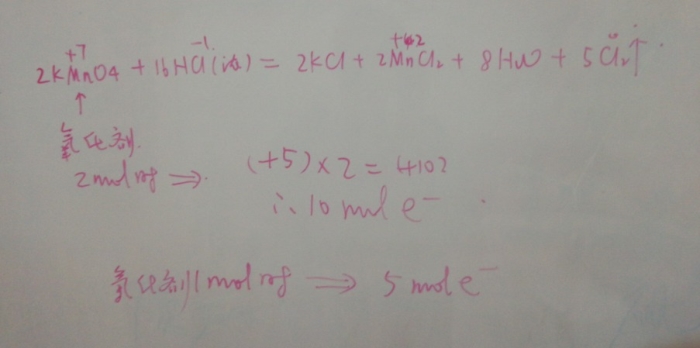 +7 -1 +2 0
2KMnO4 + 16HCl(浓) = 2KCl + 2MnCl₂ + 8H₂O + 5Cl₂↑
↑
氧化剂
2mol 时 ⇒ (+5)×2 =
∴ 10 mol e⁻
氧化剂1mol 时 ⇒ 5 mol e⁻